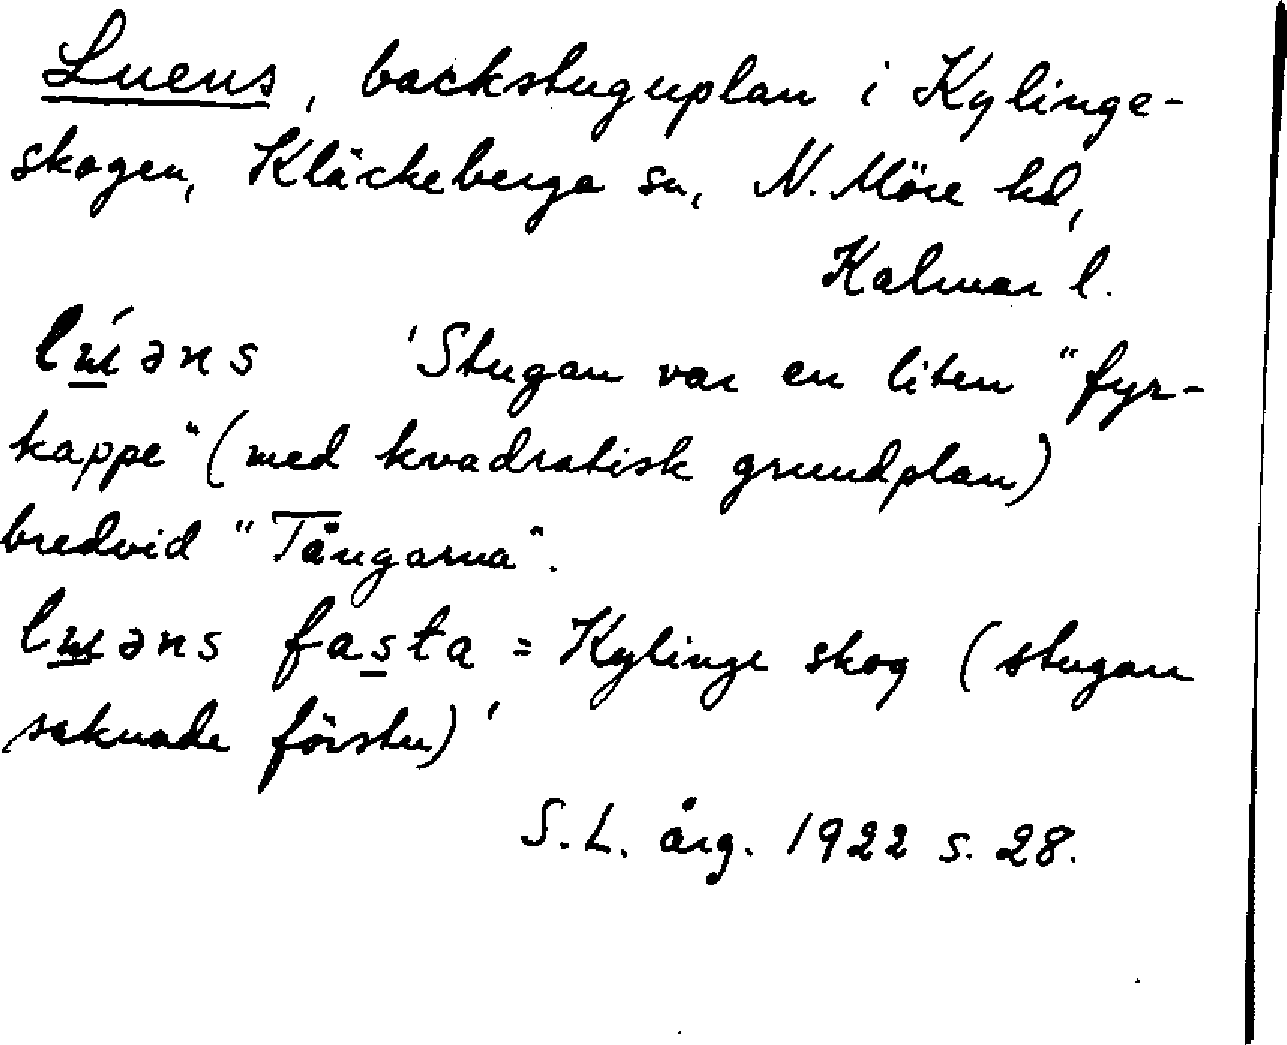 Luens, backstuguplan i Kylinge-
skogen, Kläckeberga sn, N. Möre hd,
Kalmar l.
lɯ́əns 'Stugan var en liten "fyr-
kappe" (med kvadratisk grundplan)
bredvid "Tångarna".
lɯəns fasta = Kylinge skog (stugan
saknade förstu)'
S.L. årg. 1922 s. 28.